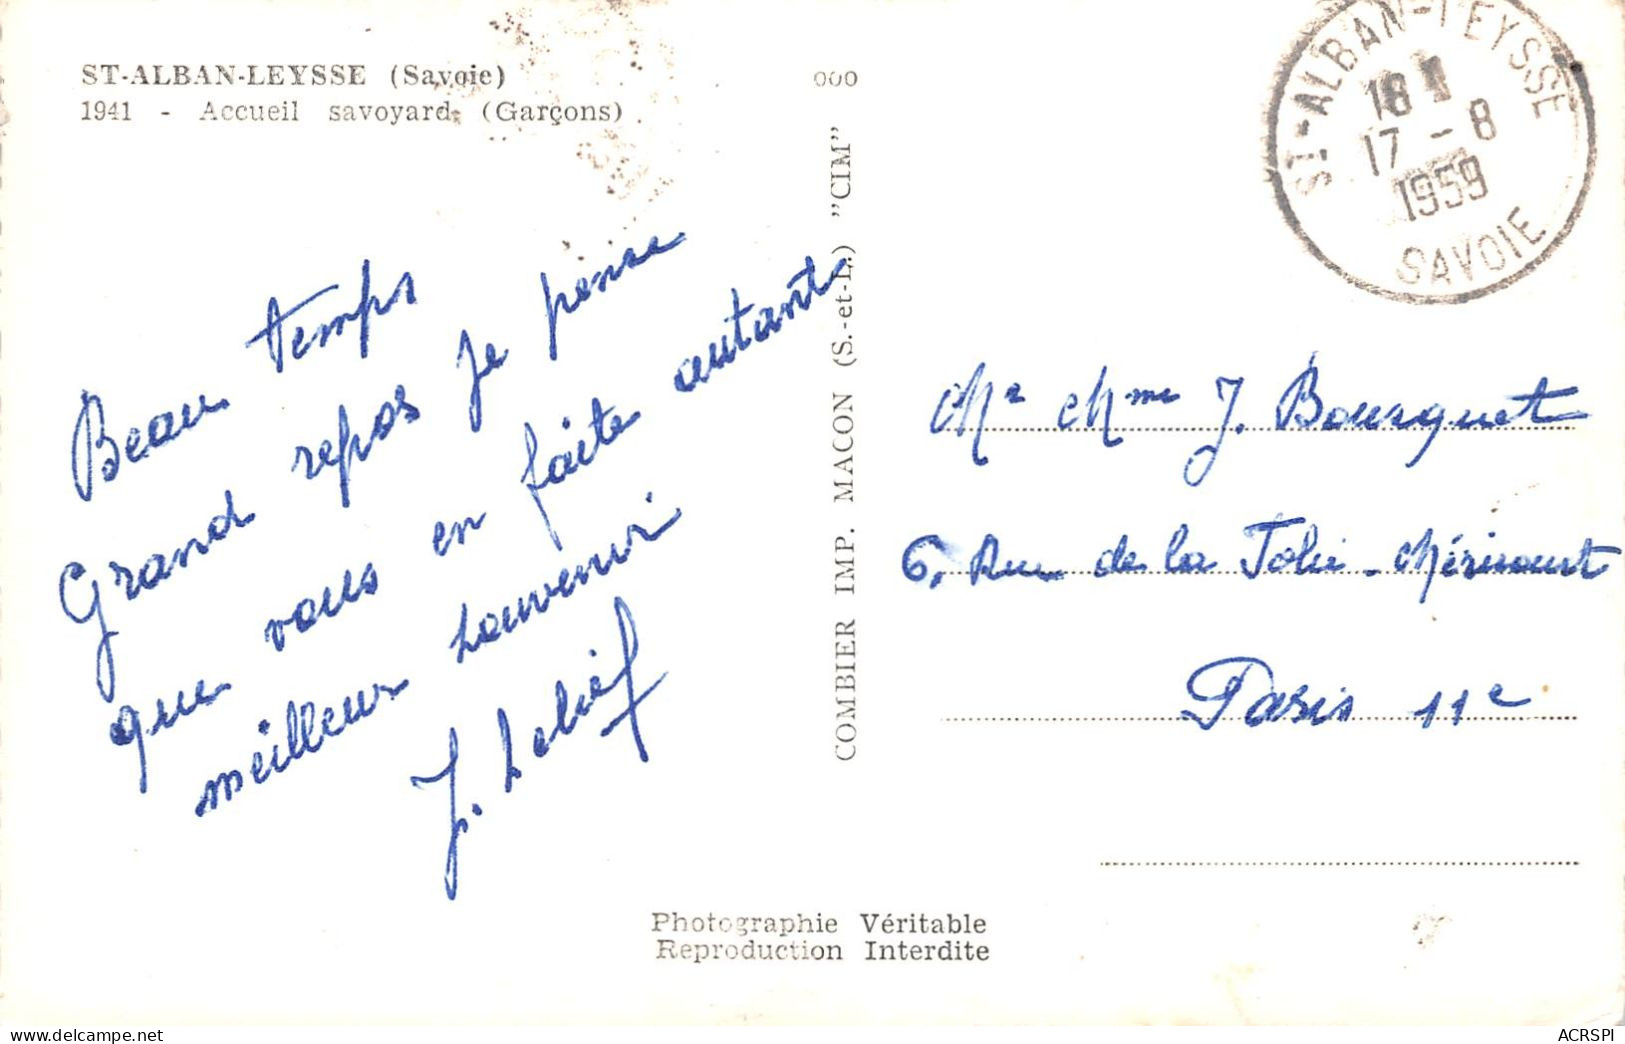 ST-ALBAN-LEYSSE (Savoie)
1941 - Accueil savoyard (Garçons)
000
ST-ALBAN-LEYSSE
18 H
17 - 8
1959
SAVOIE
Beau temps
Grand repos je pense
que vous en faite autant
meilleur souvenir
COMBIER IMP. MACON (S.-et-L.) "CIM"
Mr Mme J. Bousquet
6, Rue de la Folie-Méricourt
Paris 11e
Photographie Véritable
Reproduction Interdite
www.delcampe.net
ACRSPI